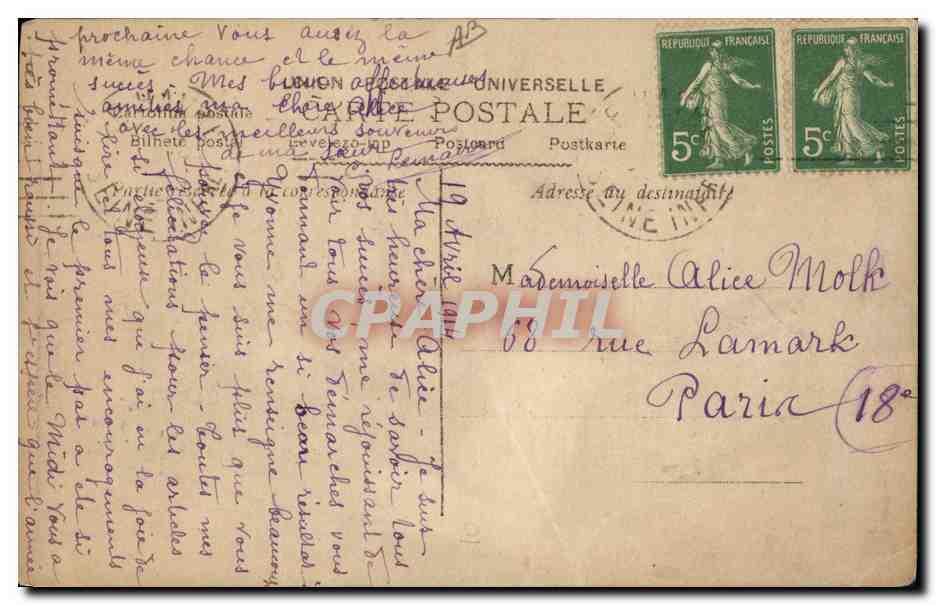 UNION POSTALE UNIVERSELLE
CARTE POSTALE
Cartolina postale
Bilhete postal Levelezo-lap Postcard Postkarte
Partie réservée à la correspondance
Adresse du destinataire
REPUBLIQUE FRANÇAISE
5c POSTES
REPUBLIQUE FRANÇAISE
5c POSTES
Mademoiselle Alice Molk
68 rue Lamark
Paris (18e
19 Avril
Ma chère Alice - Je suis
très heureuse de savoir tous
vos succès me réjouissant de
voir tous vos démarches vous
donnant un si beau résultat
Yvonne me renseigne beaucoup
et je vous suis plus que vous
le pensez - Toutes mes
félicitations pour les articles
si élogieux que j'ai eu la joie de
lire et tous mes encouragements
puisque le premier pas a été si
prometteur. Je vois que le Midi vous a
très bien réussi et j'espère que l'année
prochaine vous aurez la
même chance et le même
succès. Mes bien affectueuses
amitiés ma chère Alice
avec les meilleurs souvenirs
de ma
AB
CPAPHIL